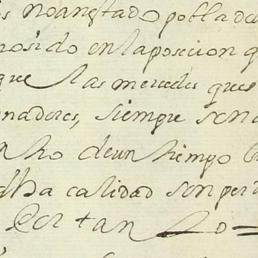 s no an estado poblados
nosido en la posicion q
que las mercedes que s
enadores, siempre sen
ho de un tiempo
dha calidad son per
Por tan to =